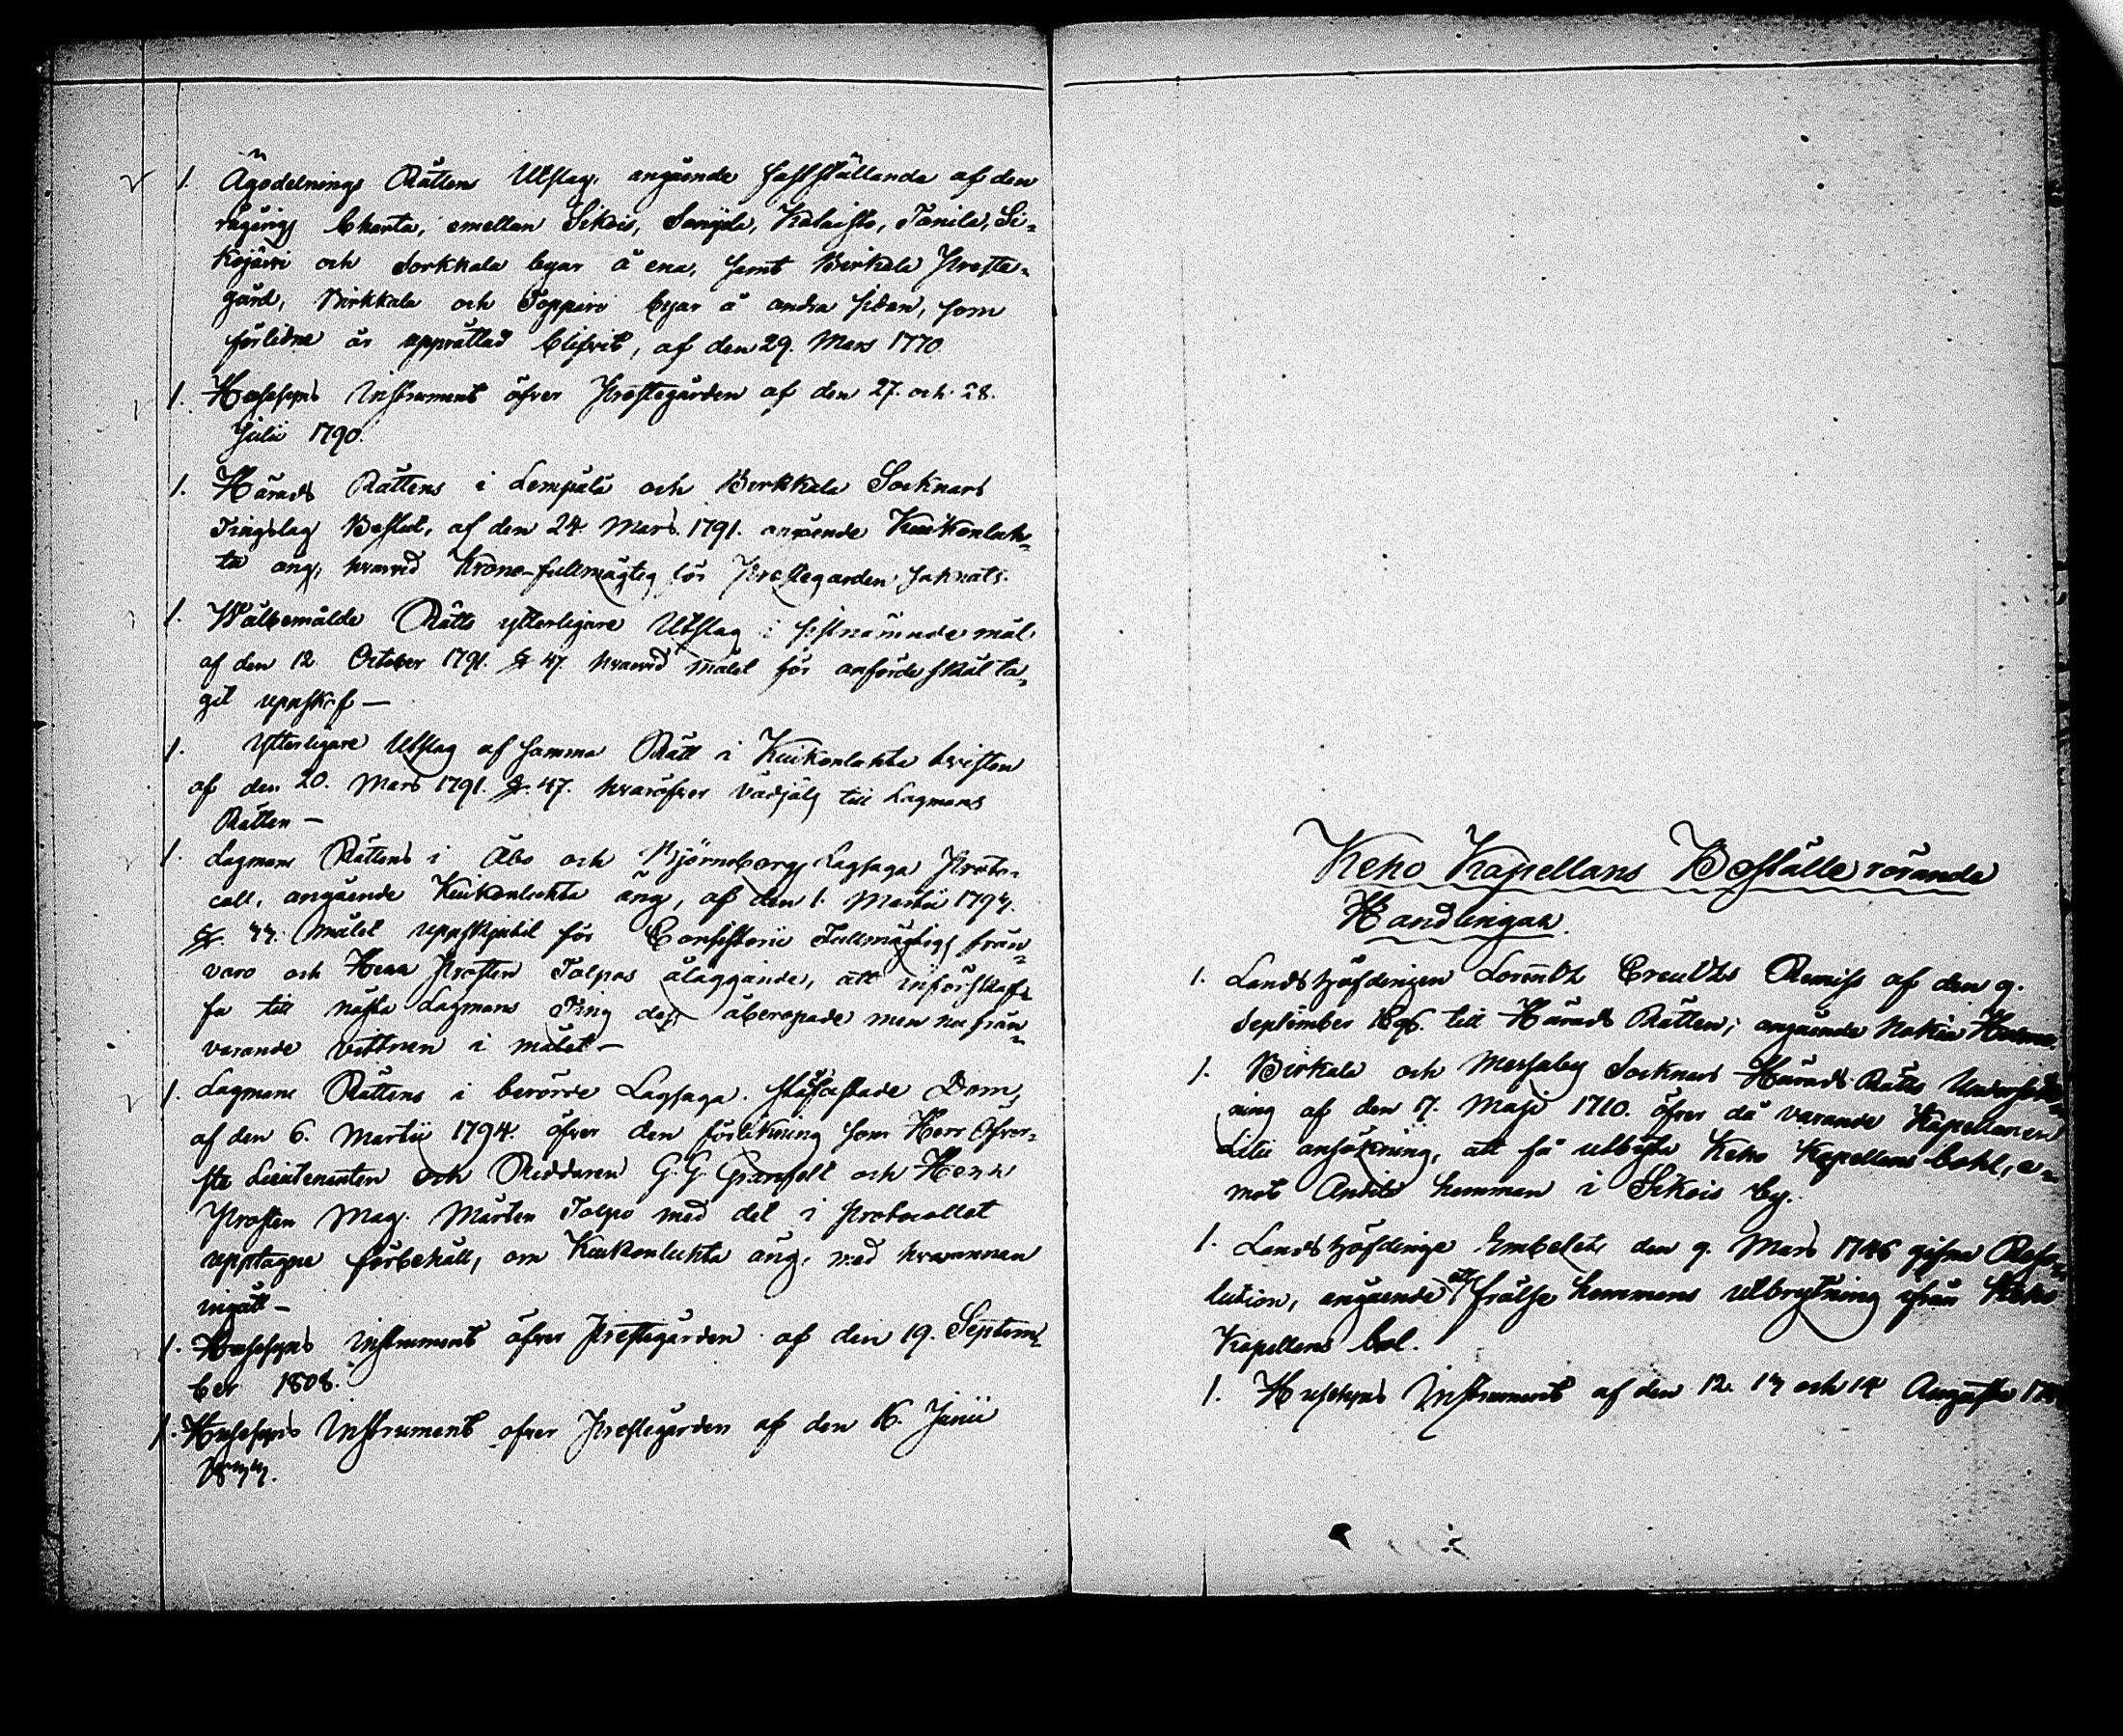 1. Ägodelnings Rättens Utslag, angående fastställande af den
rågångs Charta, emellan Sikois, Sanyda, Kalaisto, Tanila, Si-
kojärvi och Sorkkala byar å ena, samt Birkala Preste-
gård, Birkkala och Toppari byar å andra sidan, som
förlidne år upprättad blifvit, af den 29. Mars 1770.
1. Husesyns Instrument öfver Prestegården af den 27. och 28.
Julii 1790.
1. Härads Rättens i Lempälä och Birkkala Socknars
Tingslag Beslut, af den 24. Mars 1791. angående Kuikonlah-
ta äng, hvarvid Krono-fullmägtig för Prestegården saknats.
1. Wälbemälde Rätts ytterligare Utslag i sistnämnde mål
af den 12. October 1791. § 47. hvarvid målet för anförde skäl ta-
git uppskof —
1. Ytterligare Utslag af samma Rätt i Kuikonlahta tvisten
af den 20. Mars 1791. §. 47. hvaröfver vädjats till Lagmans
Rätten —
1. Lagmans Rättens i Åbo och Björneborgs Lagsaga Proto-
coll, angående Kuikonlahta äng, af den 1. Martii 1793.
§. 33. målet uppskjutit för Consistorii Fullmägtigs från-
varo och Herr Prosten Tolpos åläggande, att införskaf-
fa till nästa Lagmans Ting dess åberopade men nu från-
varande vittnen i målet —
1. Lagmans Rättens i berörde Lagsaga stadfästade Dom,
af den 6. Martii 1794. öfver den förlikning som Herr Öfver-
ste Lieutenanten och Riddaren G. G. Granfelt och Herr
Prosten Mag. Mårten Tolpo med det i Protocollet
upptagne förbehåll, om Kuikonlahta äng, med hvarannan
ingått —
1. Husesyns Instrument öfver Prestegården af den 19. Septem-
ber 1808.
1. Husesyns Instrument öfver Prestegården af den 16. Junii
1833.
Keho Kapellans Boställe rörande
Handlingar.
1. Landshöfdingen Lorentz Creutz Remiss af den 9.
September 1696. till Härads Rätten, angående Nokia
1. Birkala och Messuby Socknars Härads Rätts Undersök-
ning af den 17. Maji 1710. öfver då varande Kapellanen
Litii ansökning, att få utbyta Keho Kapellans bohl, e-
mot Anttila hemman i Sikois by.
1. Landshöfdinge Embetets den 9. Mars 1746 gifna Reso-
lution, angående ett frälse hemmans utbrytning ifrån Keho
Kapellans bol.
1. Husesyns Instrument af den 12. 13 och 14 Augusti